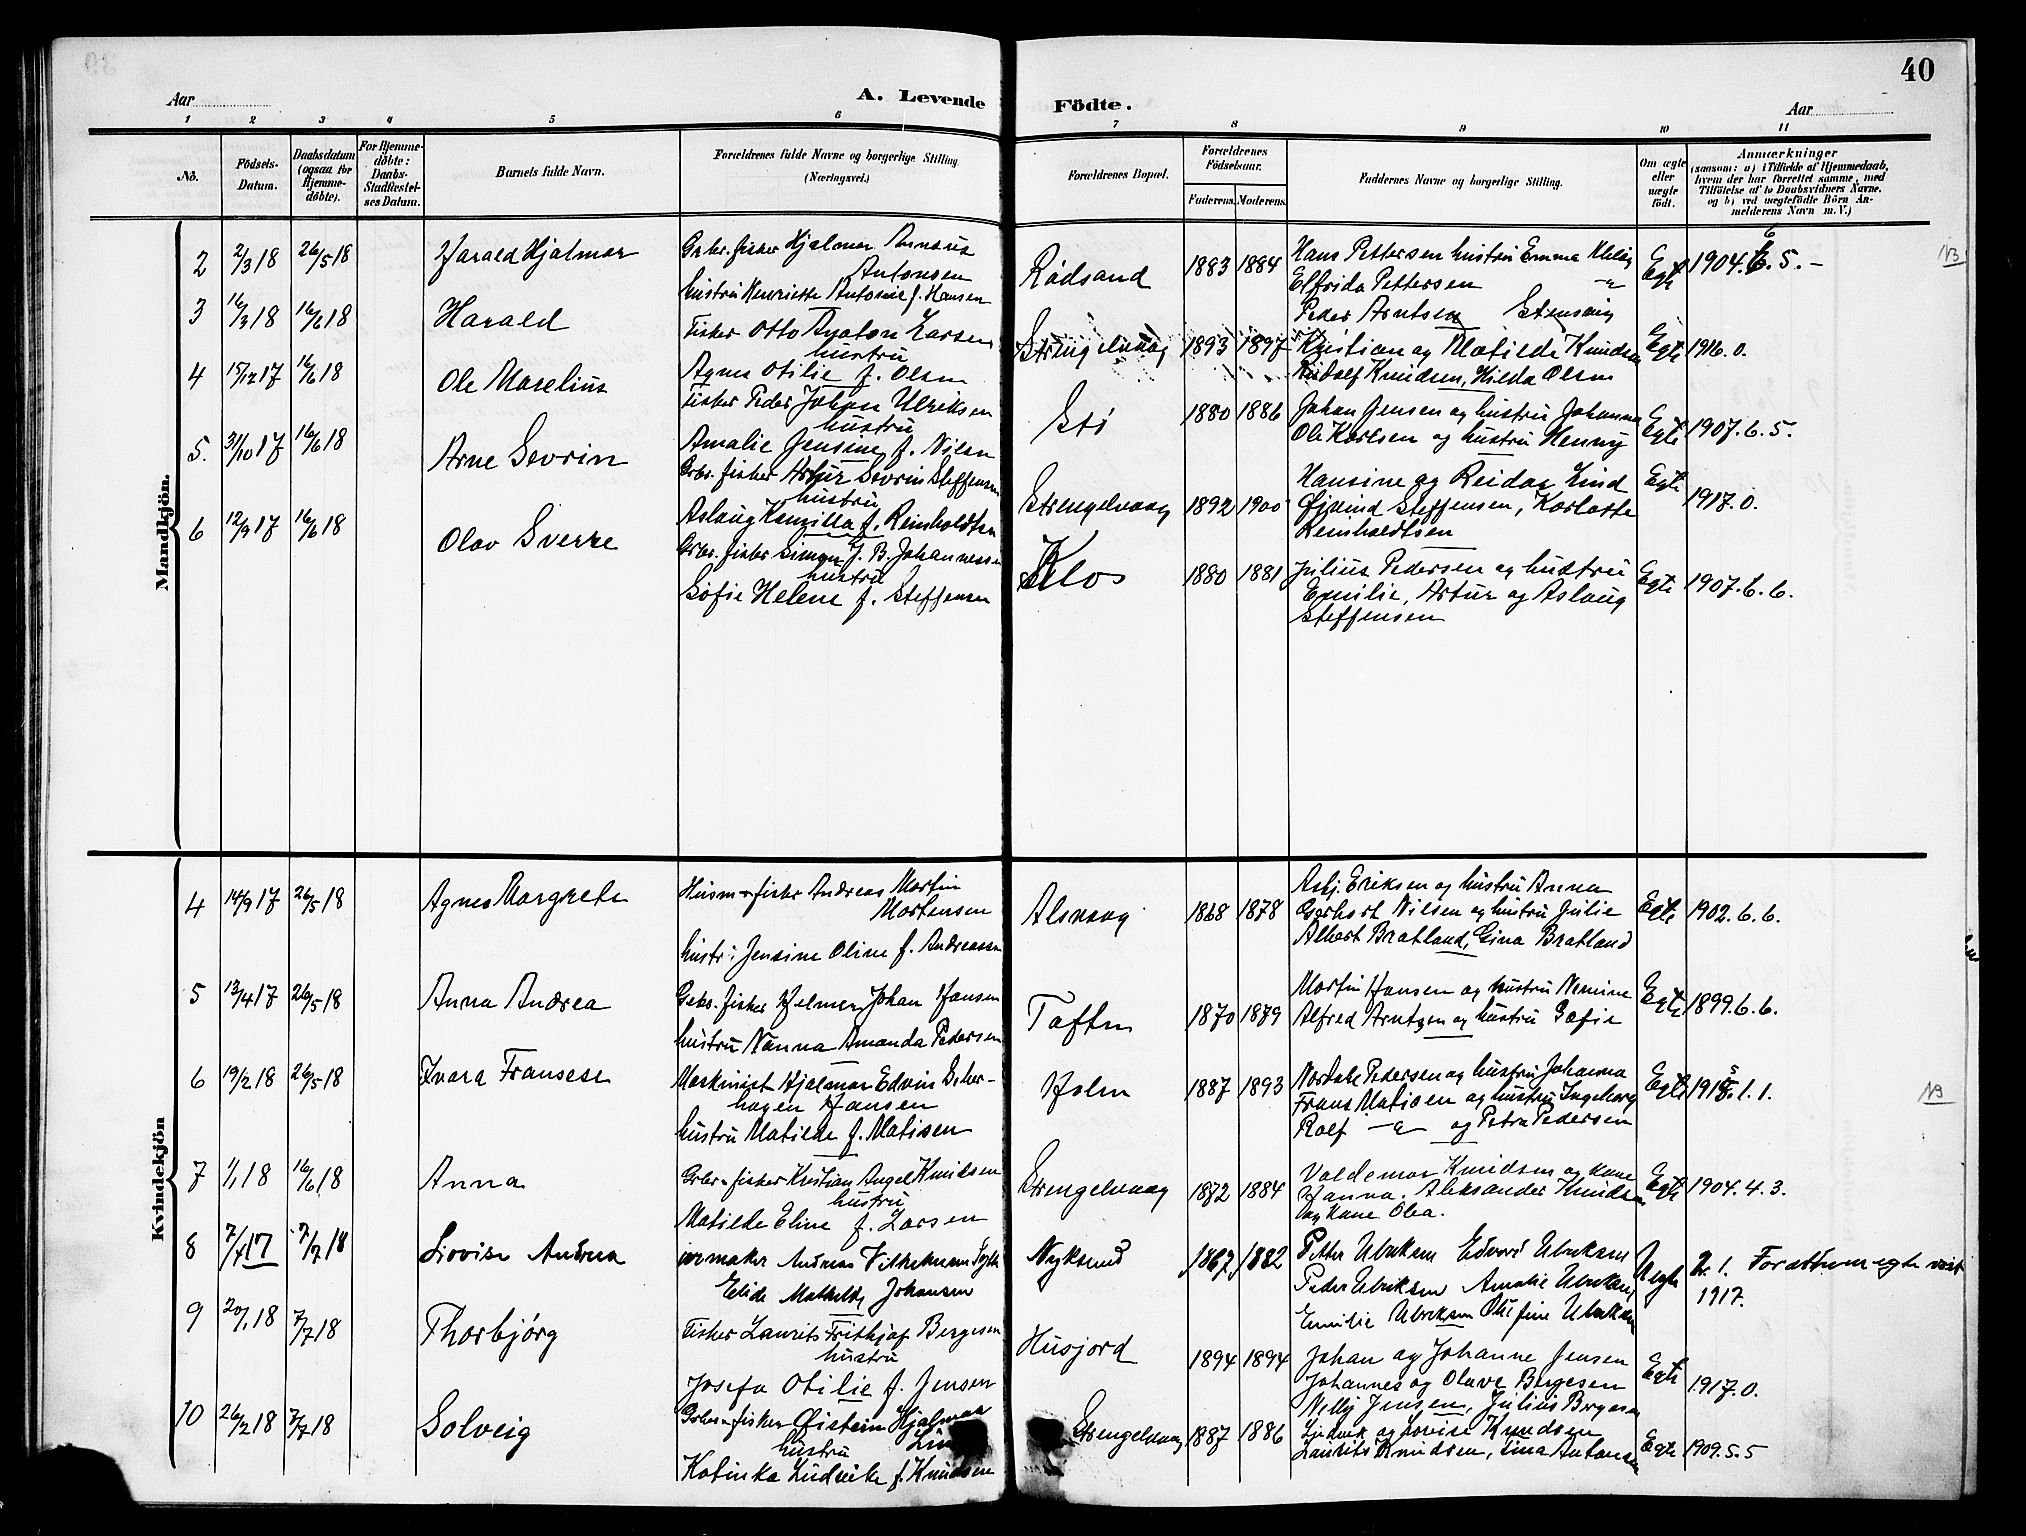 40
Aar
A. Levende Födte.
Aar
1 2 3 4 5 6 7 8 9 10 11
No.
Födsels-
Datum.
Daabsdatum
(ogsaa for
Hjemme-
döbte).
For Hjemme-
döbte:
Daabs-
Stadfæstel-
ses Datum.
Barnets fulde Navn.
Forældrenes fulde Navne og borgerlige Stilling.
(Næringsvei.)
Forældrenes Bopæl.
Forældrenes
Födselsaar.
Faderens. Moderens.
Faddernes Navne og borgerlige Stilling.
Om ægte
eller
uægte
födt.
Anmærkninger
(saasom: a) i Tilfælde af Hjemmedaab,
hvem der har forrettet samme, med
Tilföielse af to Daabsvidners Navne,
og b) ved uægtefödte Börn An-
melderens Navn m. V.)
Mandkjön.
2 2/3 18 26/5 18 Harald Hjalmar
Gbr. fisker Hjalmar Annæus
Antonsen
hustru Henriette Antonie f. Hansen
Rødsand 1883 1884
Hans Pettersen hustru Emma
Elfrida Pettersen
Peder Arntsen
Egte 1904. 6. 5. –
NB
3 16/3 18 16/6 18 Harald
Fisker Otto Anton Larsen
hustru
Agnes Otilie f. Olsen
Strengelvaag 1893 1897
Kristian og Matilde Knudsen
Rudolf Knudsen, Hilda Olsen
Egte 1916. 0.
4 15/12 17 16/6 18 Ole Marelius
Fisker Peder Johan Ulriksen
hustru
Amalie Jensine f. Nilsen
Stø 1880 1886
Johan Jensen og hustru Johanna
Ole Karlsen og hustru Henny
Egte 1907. 6. 5.
5. 31/10 17 16/6 18 Arne Sevrin
Gbr. fisker Artur Sevrin Steffensen
hustru
Aslaug Kamilla f. Reinholdtsen
Strengelvaag 1892 1900
Hansine og Reidar Lind
Øjvind Steffensen, Karlotte
Reinholdtsen
Egte 1917. 0.
6 12/9 17 16/6 18 Olav Sverre
Gbr. fisker Simon J. B. Johannessen
hustru
Sofie Helene f. Steffensen
Klos 1880 1881
Julius Pedersen og hustru
Emilie, Artur og Aslaug
Steffensen
Egte 1907. 6. 6.
Kvindekjön
4 14/9 17 26/5 18 Agnes Margrete
Husm. fisker Andreas Martin
Mortensen
hustr: Jensine Oline f. Andreassen
Alsvaag 1868 1878
Asbj. Eriksen og hustru Anna
Gerhart Nilsen og hustru Julie
Albert Bratland, Gina Bratland
Egte 1902. 6. 6.
5 13/4 17 26/5 18 Anna Andrea
Gbr. fisker Helmer Johan Hansen
hustru Nanna Amanda Pedersen
Toften 1870 1879
Martin Hansen og hustru Nemine
Alfred Arntzen og hustru Sofie
Egte 1899. 6. 6.
6 19/2 18 26/5 18 Ivara
Maskinist Hjalmar Edvin
Hansen
hustru Matilde f. Matisen
Holm 1887 1893
Nordahl Pedersen og hustru Johanna
Frans Matisen og hustru Ingeborg
Rolf — " — og Petra Pedersen
Egte 1915. 1. 1.
NB
7 1/1 18 16/6 18 Anna
Gbr. fisker Kristian Angel Knudsen
hustru
Matilde Eline f. Larsen
Strengelvaag 1872 1884
Valdemar Knudsen og kone
Hanna. Aleksander Knudsen
og kone Olea.
Egte 1904. 4. 3.
8 7/4 17 7/7 18 Lovise Andrea
urmaker Andreas Vilhelmsen
Elide Mathilde Johansen
Nyksund 1867 1882
Petter Ulriksen Edvard Ulriksen
Peder Ulriksen Amalie Ulriksen
Emilie Ulriksen Olufine Ulriksen
Uegte 2. 1.
1917.
9 20/1 18 7/7 18 Thorbjørg
Fisker Laurits Frithjof Bergesen
hustru
Josefa Otilie f. Jensen
Husjord 1894 1894
Johan og Johanne Jensen
Johannes og Olave Bergesen
Nelly Jensen, Julius Bergesen
Egte 1917. 0.
10 26/2 18 7/7 18 Solveig
Gbr. fisker Øistein Hjalmar
hustru
Katinka Ludvikke f. Knudsen
Strengelvaag 1887 1886
Ludvik og Lovise Knudsen
Laurits Knudsen, Lina Antonsen
Egte 1909. 5. 5